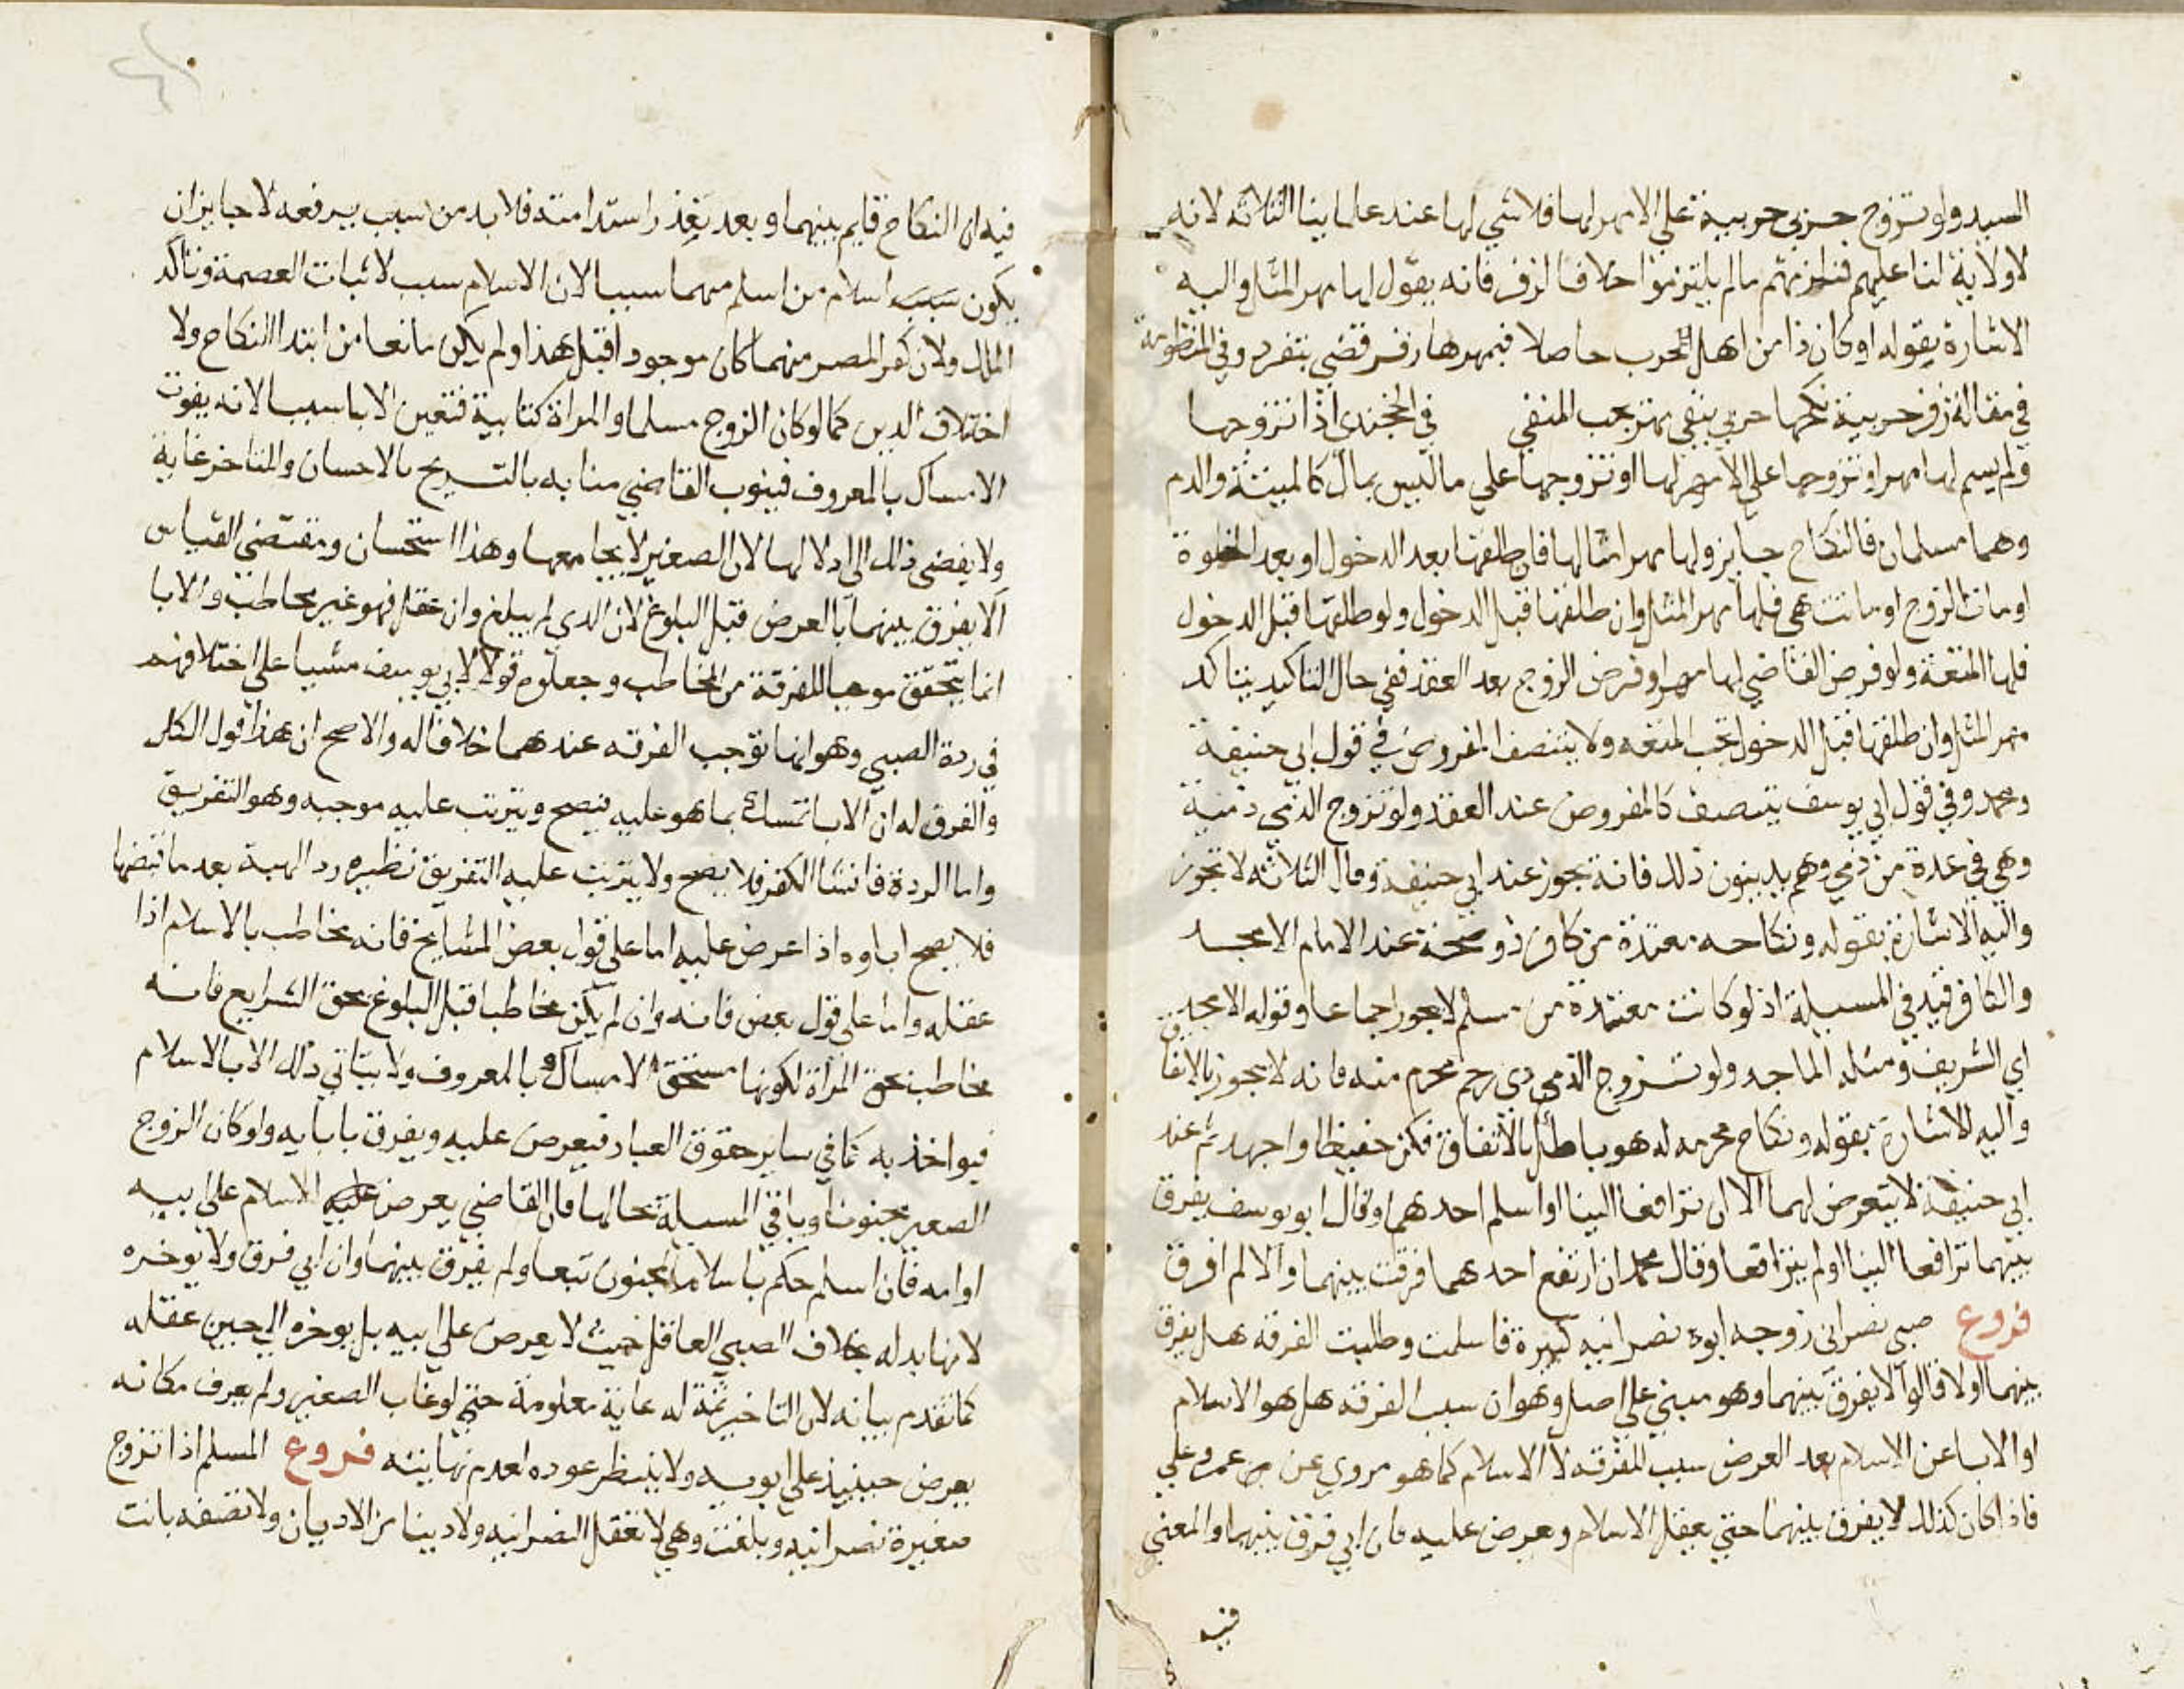 السيد ولو تزوج حربي حربية على الا مهر لها فلا شي لها عند علماينا الثلاثه لانه
لا ولاية لنا عليهم فنلزمهم ما لم يلتزموا خلافا لزفر فانه يقول لها مهر المثل واليه
الاشارة بقوله او كان ذا من اهل الحرب حاصلا فمهرها زفر قضى بتفرد وفي المنظومة
في مقالة زفر حربية نكحها حربي بنفي مهر يجب المنفي في الخجندي اذا تزوجها
ولم يسم لها مهرا وتزوجها على الا مهر لها او تزوجها على ما ليس بمال كالميتة والدم
وهما مسلمان فالنكاح جايز ولها مهر امثالها فان طلقها بعد الدخول او بعد الخلوة
او مات الزوج او ماتت هي فلها مهر المثل وان طلقها قبل الدخول ولو طلقها قبل الدخول
فلها المتعة ولو فرض القاضي لها مهرا وفرض الزوج بعد العقد ففي حال التاكيد يتاكد
مهر المثل وان طلقها قبل الدخول تجب المتعه ولا يتنصف المفروض في قول ابي حنيفة
ومحمد وفي قول ابي يوسف يتنصف كالمفروض عند العقد ولو تزوج الذمي ذمية
وهي في عدة من ذمي وهم يدينون ذلك فانه يجوز عند ابي حنيفة وقال الثلاثه لا تجوز
واليه الاشارة بقوله ونكاحه معتدة من كافر ذو صحة عند الامام الامجد
والكافر قيد في المسيلة اذ لو كانت معتدة من مسلم لا يجوز اجماعا وقوله الامجد
اي الشريف ومثله الماجد ولو تزوج الذمي ذي رحم محرم منه فانه لا يجوز بالاتفاق
واليه الاشارة بقوله ونكاح محرمه له هو باطل بالاتفاق فكن حفيظا واجهد ثم عند
ابي حنيفة لا يتعرض لهما الا ان ترافعا الينا او اسلم احدهما وقال ابو يوسف يفرق
بينهما ترافعا الينا او لم يترافعا وقال محمد ان ارتفع احدهما فرقت بينهما والا لم افرق
فروع صبي نصراني زوجه ابوه نصرانيه كبيرة فاسلمت وطلبت الفرقه هل يفرق
بينهما اولا قالوا لا يفرق بينهما وهو مبني على اصل وهو ان سبب الفرقه هل هو الاسلام
او الابا عن الاسلام بعد العرض سبب للفرقه لا الاسلام كما هو مروي عن عمر وعلي
فاذا كان كذلك لا يفرق بينهما حتى يعقل الاسلام ويعرض عليه فان ابي فرق بينهما والمعنى
فيه
فيه ان النكاح قايم بينهما وبعد تعذر استدامته فلا بد من سبب يرفعه لا جايز ان
يكون سبب اسلام من اسلم منهما سببا لان الاسلام سبب لاثبات العصمة وتاكد
الملك ولان كفر المصر منهما كان موجودا قبل هذا ولم يكن مانعا من ابتدا النكاح ولا
اختلاف الدين كما لو كان الزوج مسلما والمراة كتابية فتعين الابا سببا لانه يفوت
الامساك بالمعروف فينوب القاضي منابه بالتسريح بالاحسان والمتاخر غاية
ولا يفضي ذلك الى اذلالها لان الصغير لا يجامعها وهذا استحسان ومقتضى القياس
الا يفرق بينهما بالعرض قبل البلوغ لان الذي لم يبلغ وان عقل فهو غير مخاطب والابا
انما يتحقق موجبا للفرقة من المخاطب وجعلوه قولا لابي يوسف مشيا على اختلافهم
في ردة الصبي وهو انها توجب الفرقه عندهما خلافا له والاصح ان هذا قول الكل
والفرق له ان الابا تمسك بما هو عليه فيصح ويترتب عليه موجبه وهو التفريق
واما الردة فانشا الكفر فلا يصح ولا يترتب عليه التفريق نظيره رد الهبة بعد ما قبضها
فلا يصح اباوه اذا عرض عليه اما على قول بعض المشايخ فانه مخاطب بالاسلام اذا
عقله واما على قول بعض فانه وان لم يكن مخاطبا قبل البلوغ بحق الشرايع فانه
مخاطب بحق المراة لكونها مستحق الامساك بالمعروف ولا يتاتي ذلك الا بالاسلام
فيواخذ به كما في ساير حقوق العباد فيعرض عليه ويفرق بابايه ولو كان الزوج
الصغير مجنونا وباقي المسيلة بحالها فان القاضي يعرض عليه الاسلام على ابيه
او امه فان اسلم حكم باسلام المجنون تبعا ولم يفرق بينهما وان ابي فرق ولا يوخره
لا نهايه له بخلاف الصبي العاقل حيث لا يعرض على ابيه بل يوخره الى حين عقله
كما تقدم بيانه لان التاخير ثمة له غاية معلومة حتى لو غاب الصغير ولم يعرف مكانه
يعرض حينيذ على ابويه ولا ينتظر عوده لعدم نهايته فروع المسلم اذا تزوج
صغيرة نصرانيه وبلغت وهي لا تعقل النصرانيه ولا دينا من الاديان ولا تصفه بانت